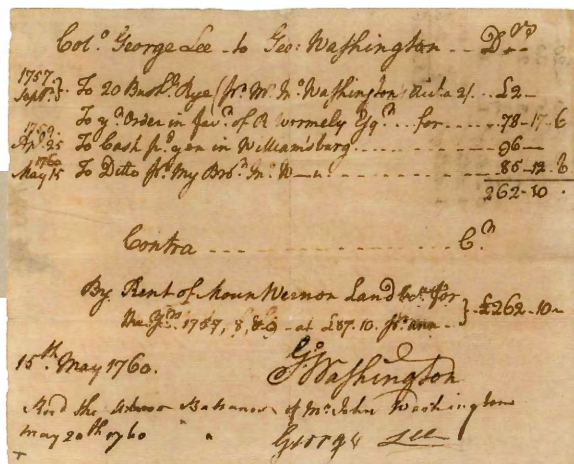 Colo. George Lee - to Geo: Washington - - Dr.
1757.
Septr. 3 To 20 Bushls. Rye (pr. Mr. Jno. Washington) Rect. a 2/ .. £2 -
To yr. Order in favr. of R Wormely Esqr. ... for .... 78 - 17 - 6
1759.
Apl. 25 To Cash pd. you in Williamsburg .......... 96 -
1760
May 15 To Ditto pr. My Bror. Jno. W—n. - - - - 85 - 12 - 6
262 - 10 .
Contra - - - - - - - - Cr.
By Rent of Mount Vernon Land for
1757, 8, & 9 - at £87.10. pr. ann - £262 - 10 -
15th. May 1760.
Go: Washington
Recd the above Balance of Mr. John Washington
May 20th 1760 " "
George Lee